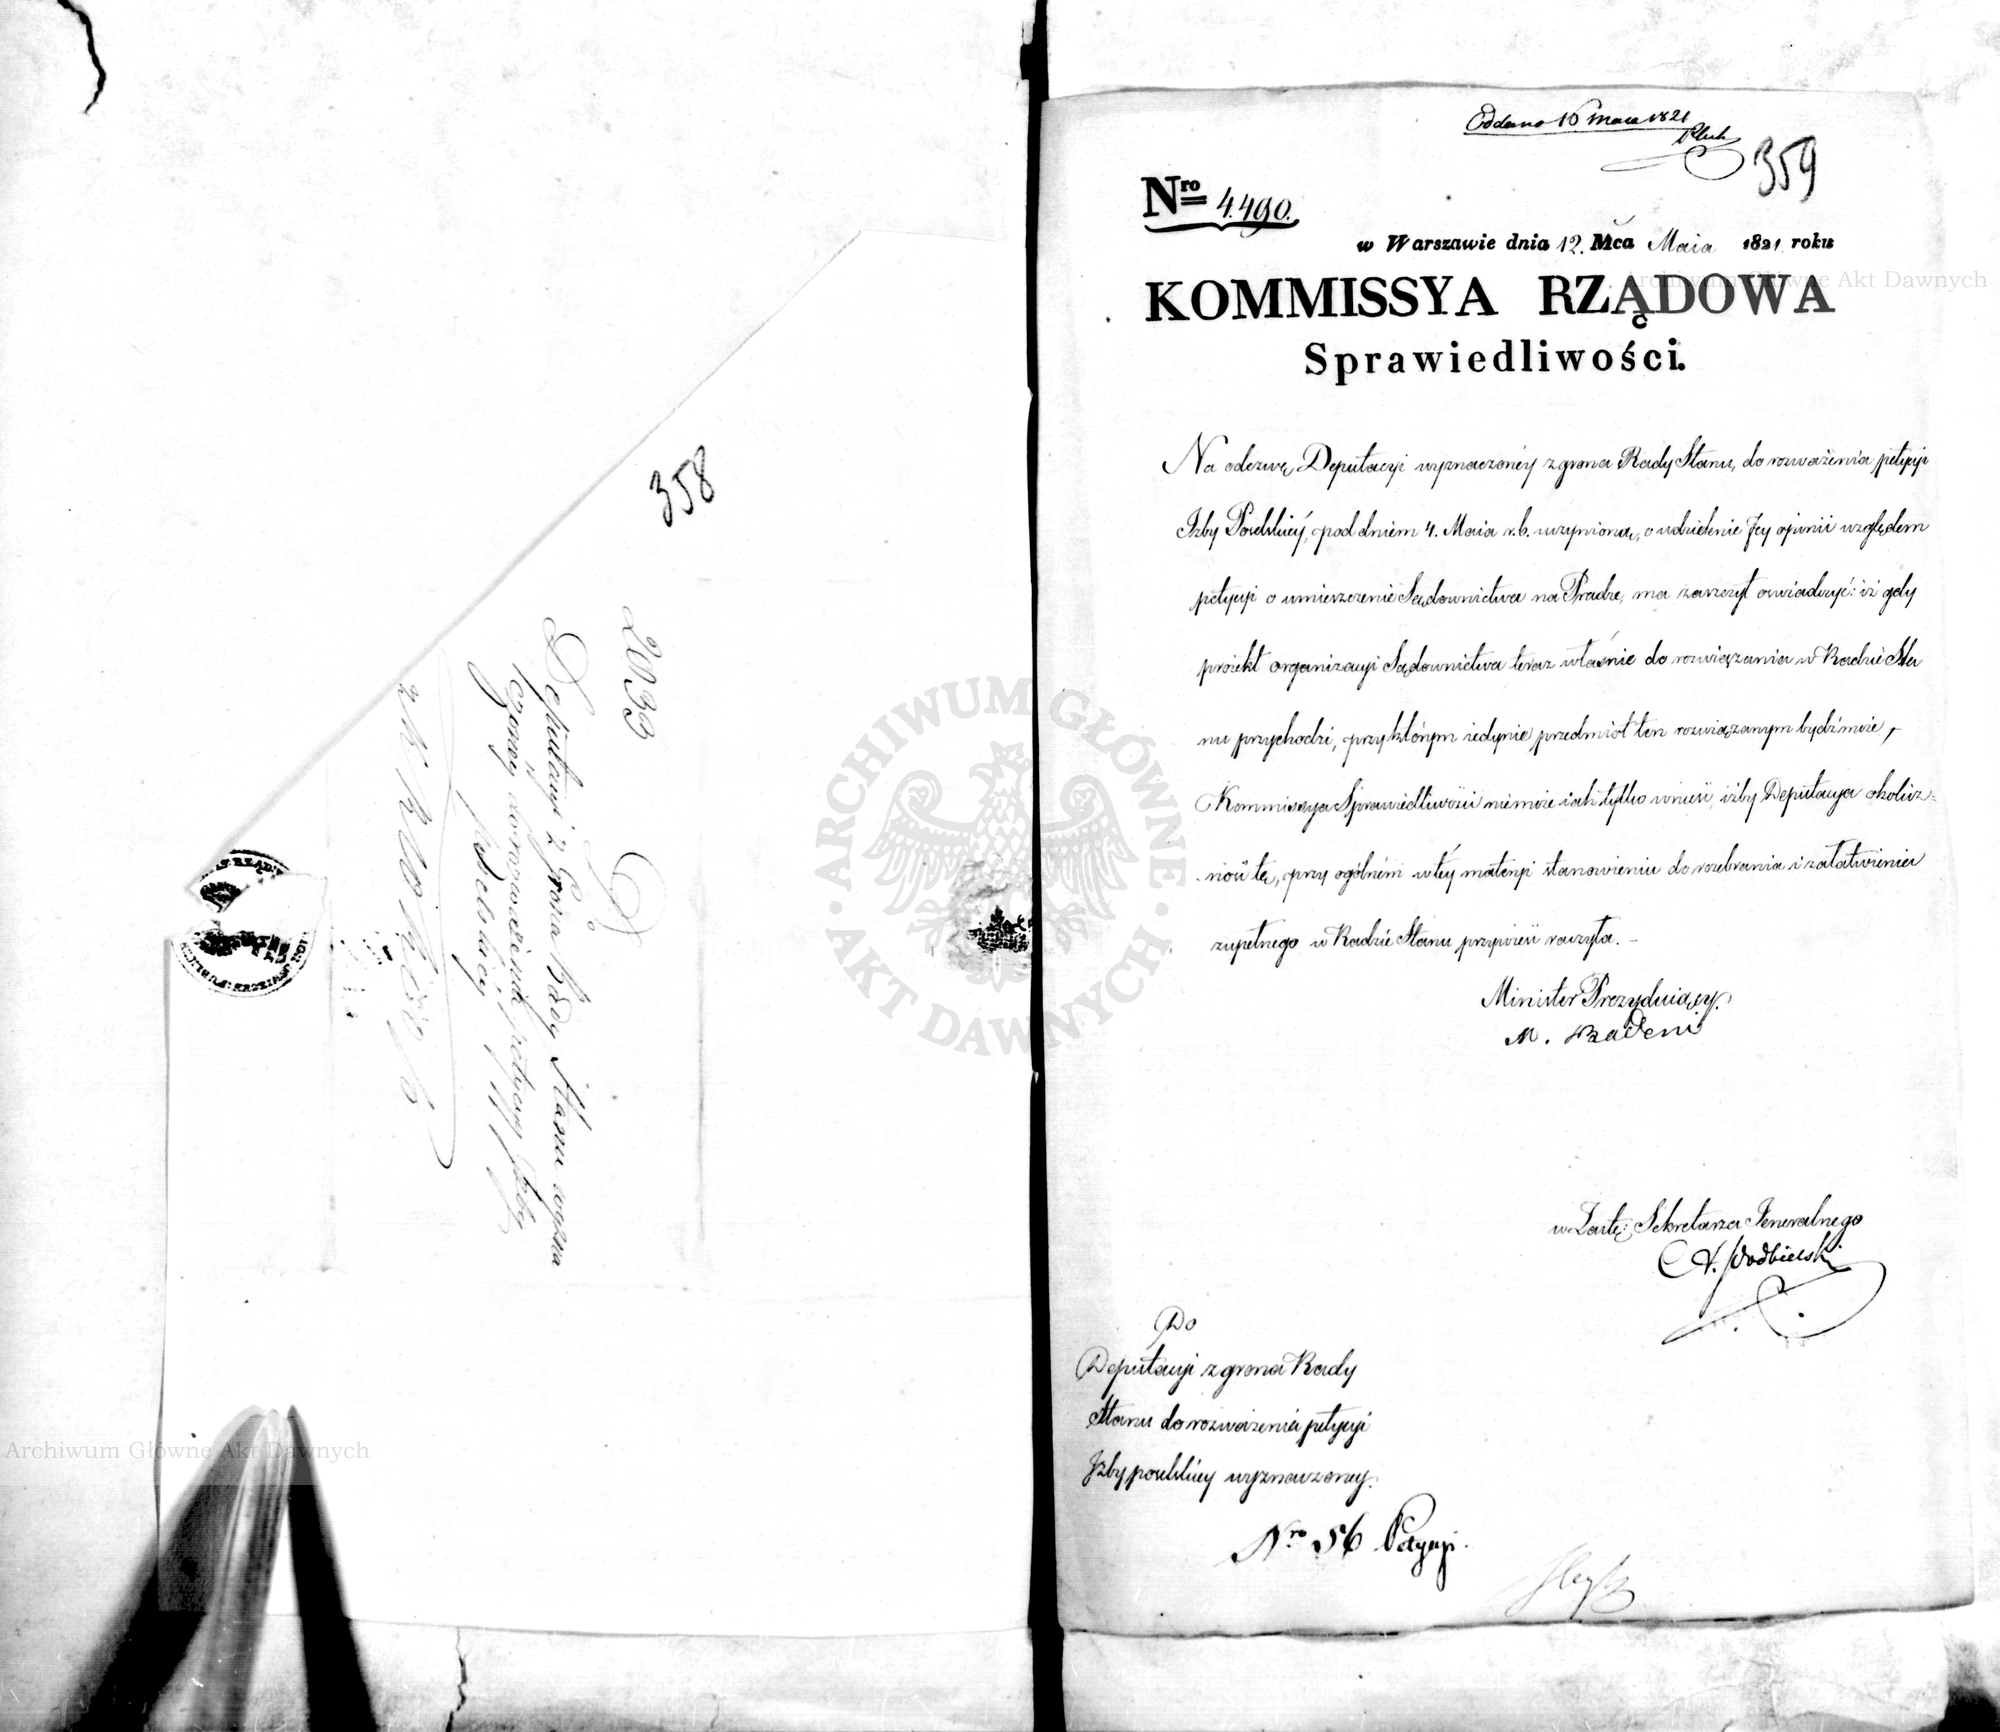 358
2033
Do
Deputacyi z Grona Rady Stanu wyzna
czoney do rozważenia petycyi Izby
Poselskiey
Oddano 16 Maia 1821
359
Nro 4.490.
w Warszawie dnia 12. Mca Maia 1821 roku
KOMMISSYA RZĄDOWA
Sprawiedliwości.
Na odezwę Deputacyi wyznaczonéy z grona Rady Stanu, do rozważenia petycyi
Izby Poselskiéy, pod dniem 4. Maia r.b. uczynioną, o udzielenie Jey opinii względem
petycyi o umieszczenie Sądownictwa na Pradze, ma zaszczyt oświadczyć: iż gdy
proiekt organizacyi Sądownictwa teraz właśnie do rozwiązania w Radzie Sta
nu przychodzi, przy którym iedynie przedmiot ten rozwiązanym bydź może,
Kommissya Sprawiedliwości niemoże iak tylko wnieść, iżby Deputacya okolicz=
ność tę, przy ogólném w téy materyi stanowieniu do rozebrania i załatwienia
zupełnego w Radzie Stanu przynieść raczyła. –
Minister Prezyduiący.
M. Badeni
w Zastę: Sekretarza Jeneralnego
A. Podbielski
Do
Deputacyi z grona Rady
Stanu do rozważenia petycyi
Izby poselskiey wyznaczoney.
Nro 56 Petycyi.
ARCHIWUM GŁÓWNE
AKT DAWNYCH
Archiwum Główne Akt Dawnych
Archiwum Główne Akt Dawnych